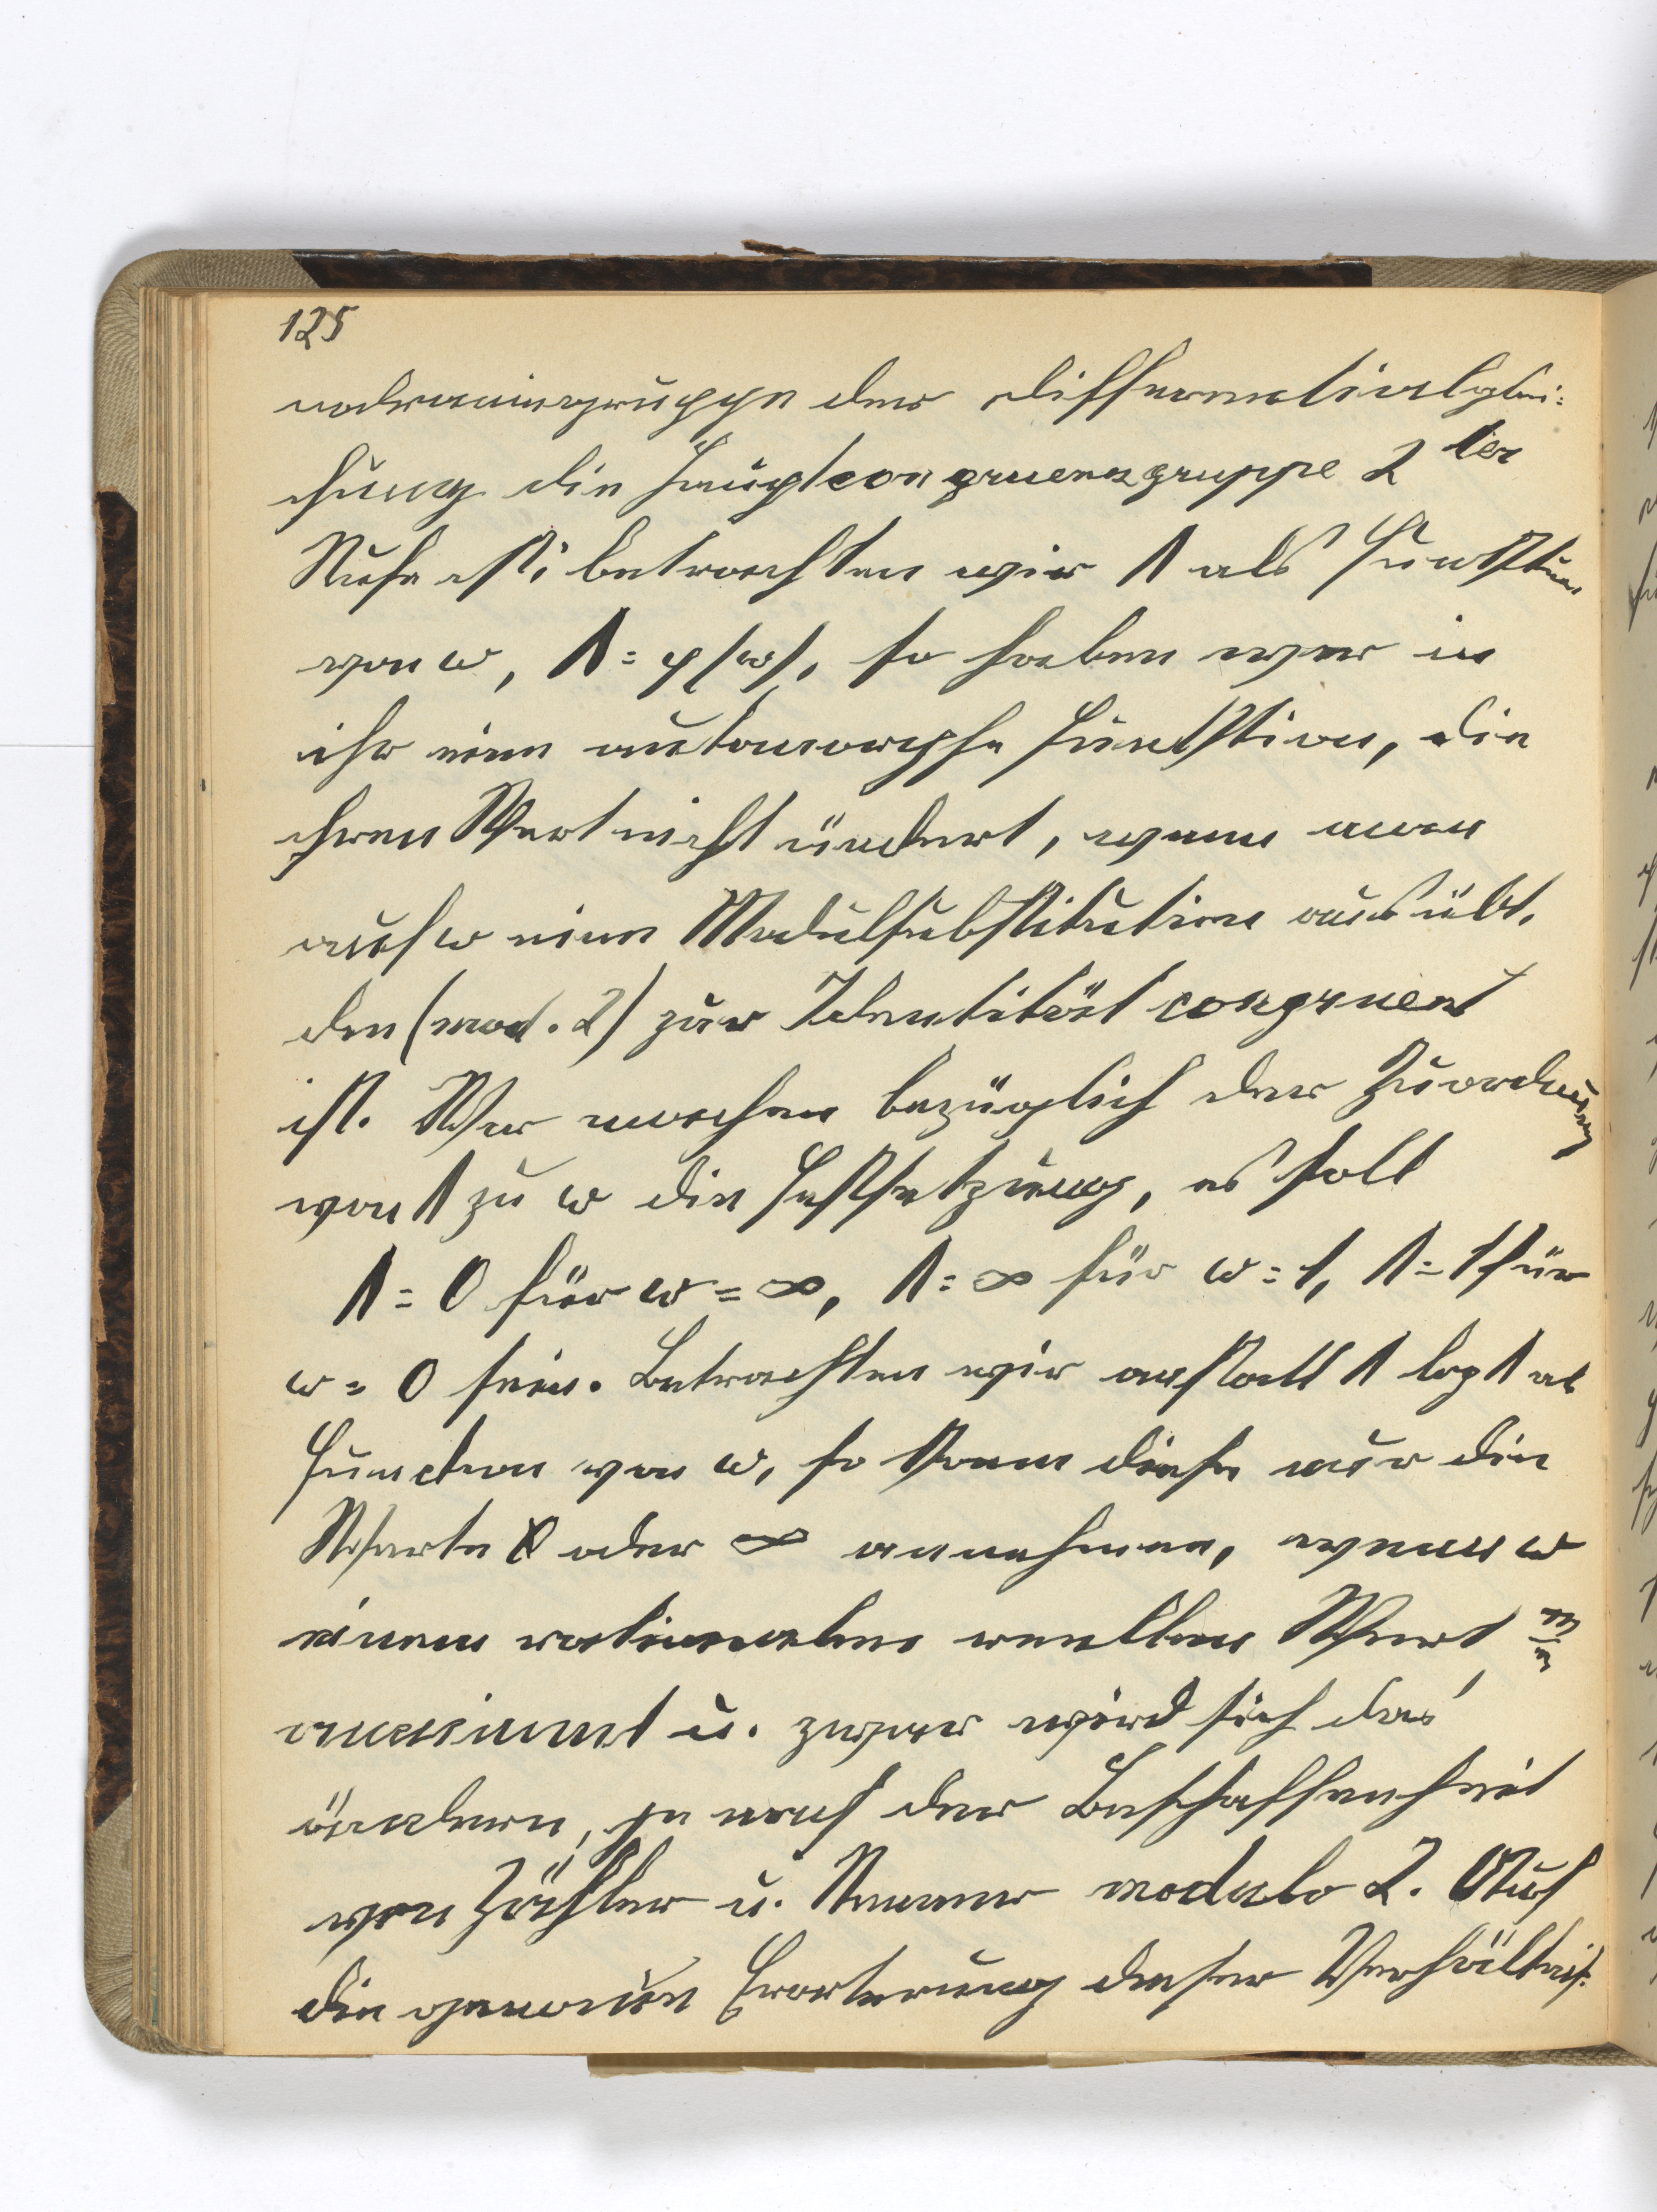 125
nodromiegruppe der Differentialglei-
chung die Hauptcongruenzgruppe 2ter
Stufe ist; betrachten wir λ als Funktion
von ω, λ = φ(ω), so haben wir in
ihr eine automorphe Funktion, die
ihren Wert nicht ändert, wenn man
auf ω eine Modulsubstitution ausübt,
den (mod. 2) zur Identität congruent
ist. Wir machen bezüglich der Zuordnung
von λ zu ω die Festsetzung, es soll
λ = 0 für ω = ∞, λ = ∞ für ω = 1, λ = 1 für
ω = 0 sein. Betrachten wir anstatt λ log λ als
Function von ω, so kann diese nur die
Werte 0 oder ∞ annehmen, wenn ω
einen rationalen reellen Wert m/n
annimmt u. zwar wird sich das
ändern, je nach der Beschaffenheit
von Zähler u. Nenner modulo 2. Auf
die genauen Erörterung dieser Verhältnis-